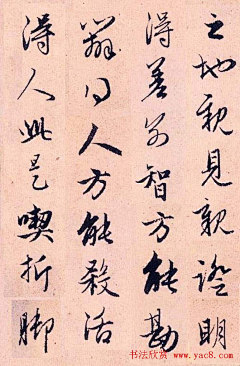 之地親見親證明
得差別智方能勘
辨同人方能殺活
得人此是喫折脚
书法欣赏
www.yac8.com